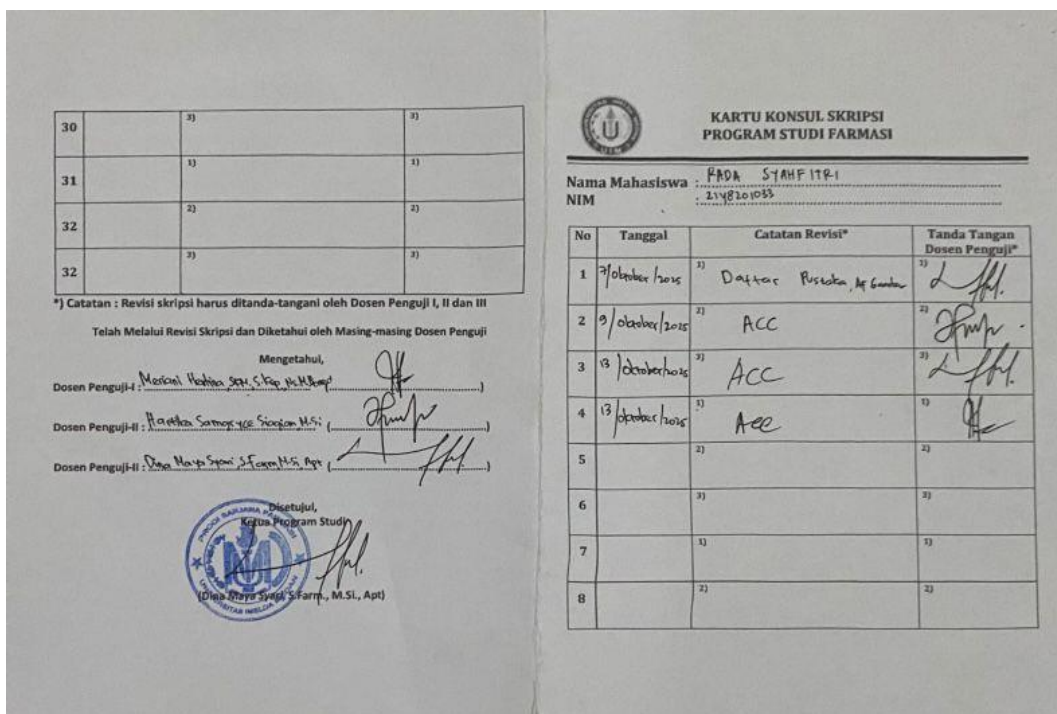 30 3) 3)
31 1) 1)
32 2) 2)
32 3) 3)
*) Catatan : Revisi skripsi harus ditanda-tangani oleh Dosen Penguji I, II dan III
Telah Melalui Revisi Skripsi dan Diketahui oleh Masing-masing Dosen Penguji
Mengetahui,
Dosen Penguji-I :
Dosen Penguji-II : M.Si (
Dosen Penguji-II : Dina Maya Syari, S.Farm, M.Si, Apt (
Disetujui,
Ketua Program Studi
(Dina Maya Syari, S.Farm., M.Si., Apt)
KARTU KONSUL SKRIPSI
PROGRAM STUDI FARMASI
Nama Mahasiswa : RADA SYAHFITRI
NIM : 2148201033
No Tanggal Catatan Revisi* Tanda Tangan Dosen Penguji*
1 7/oktober/2025 1) Daftar Pustaka, 3)
2 9/oktober/2025 2) ACC 2)
3 13/oktober/2025 3) ACC 3)
4 13/oktober/2025 1) ACC 1)
5 2) 2)
6 3) 3)
7 1) 1)
8 2) 2)